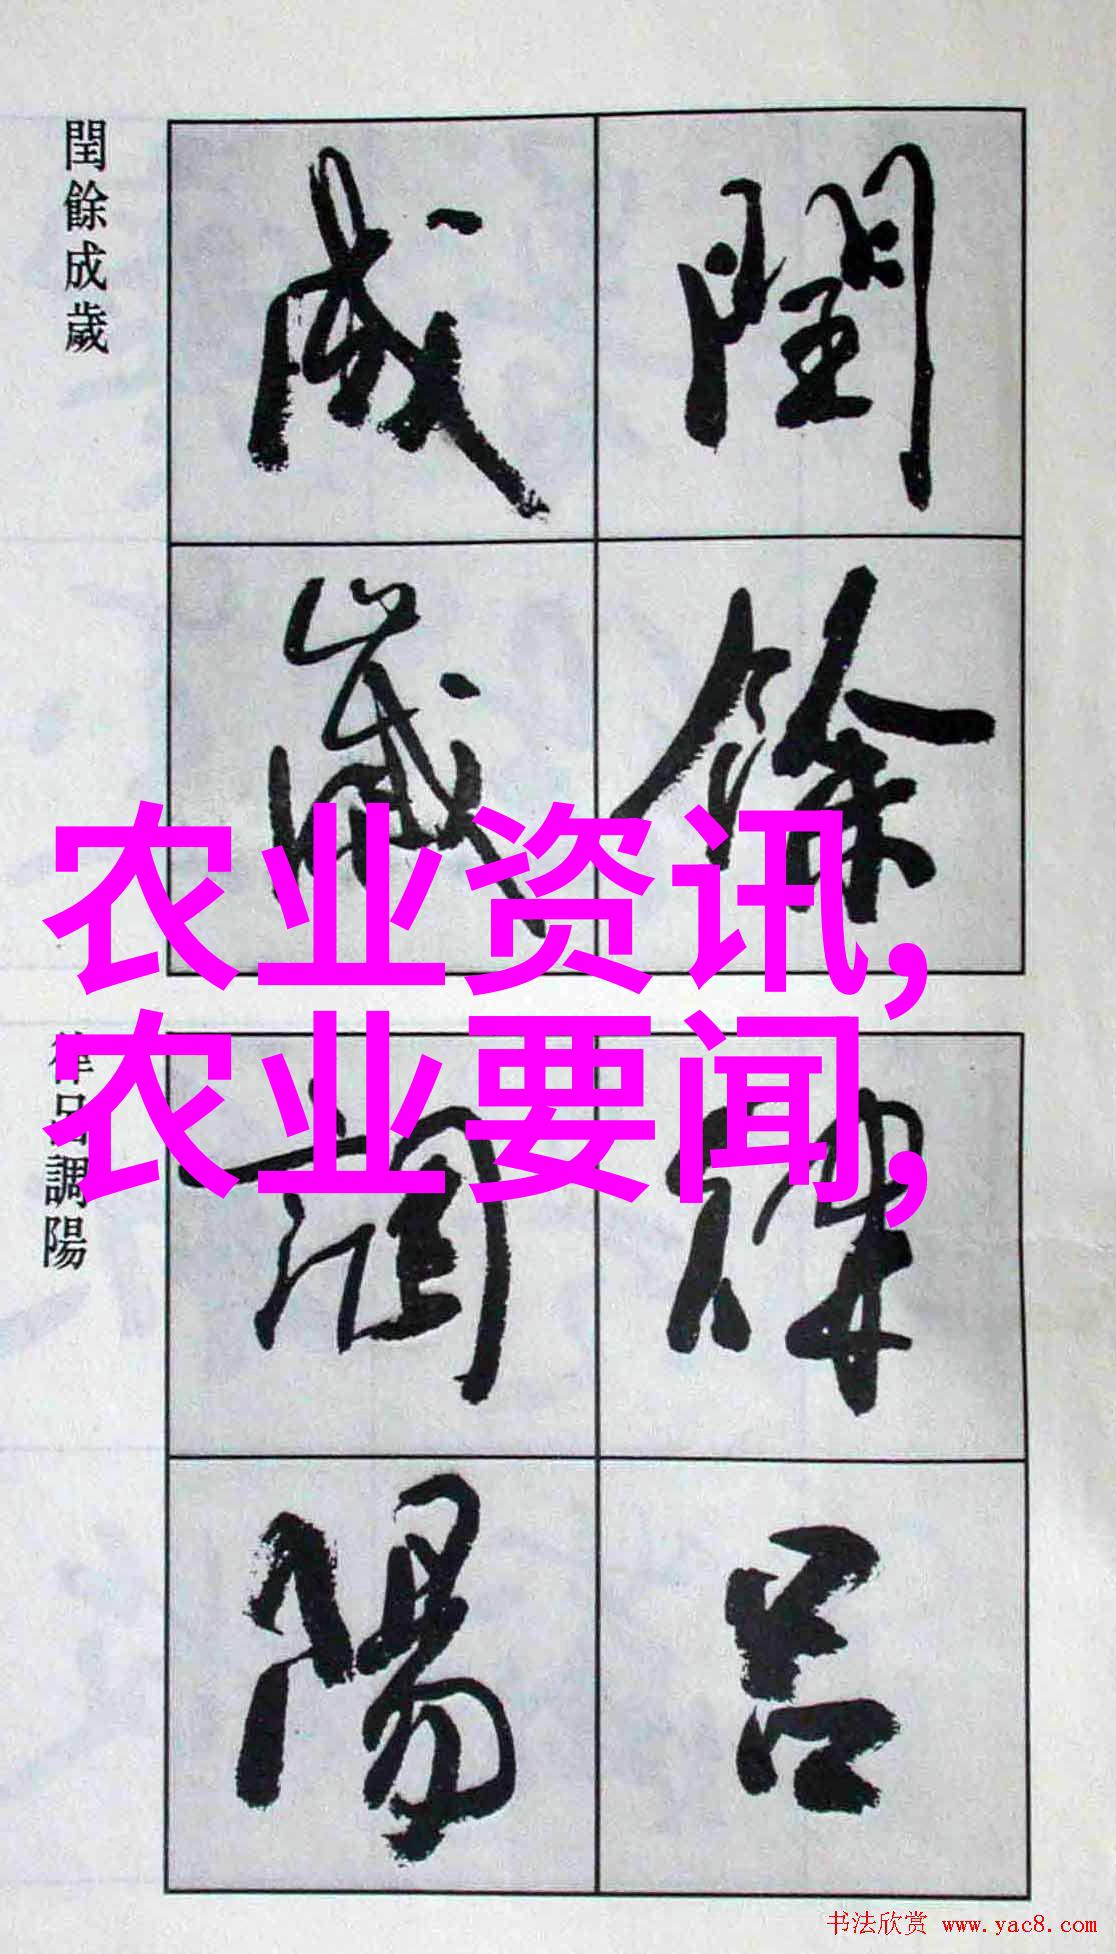 閏餘
成歲
閏餘成歲
农业资讯,
农业要闻,
律呂
調陽
律呂調陽
书法欣赏 www.yac8.com